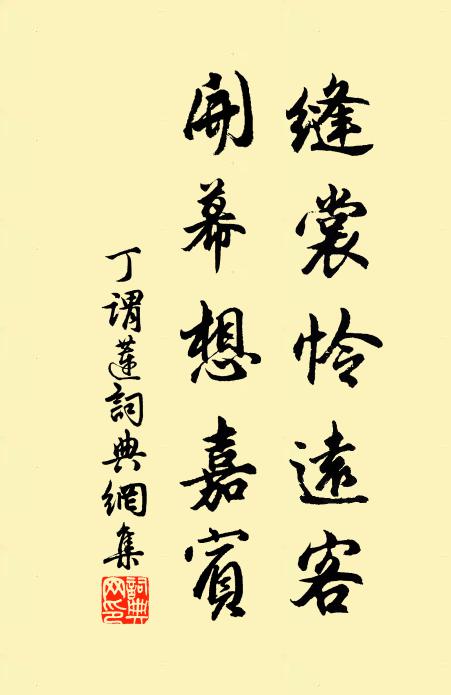 縫裳怜遠客
開幕想嘉賓
丁謂蓮詞典網集
詞典网印